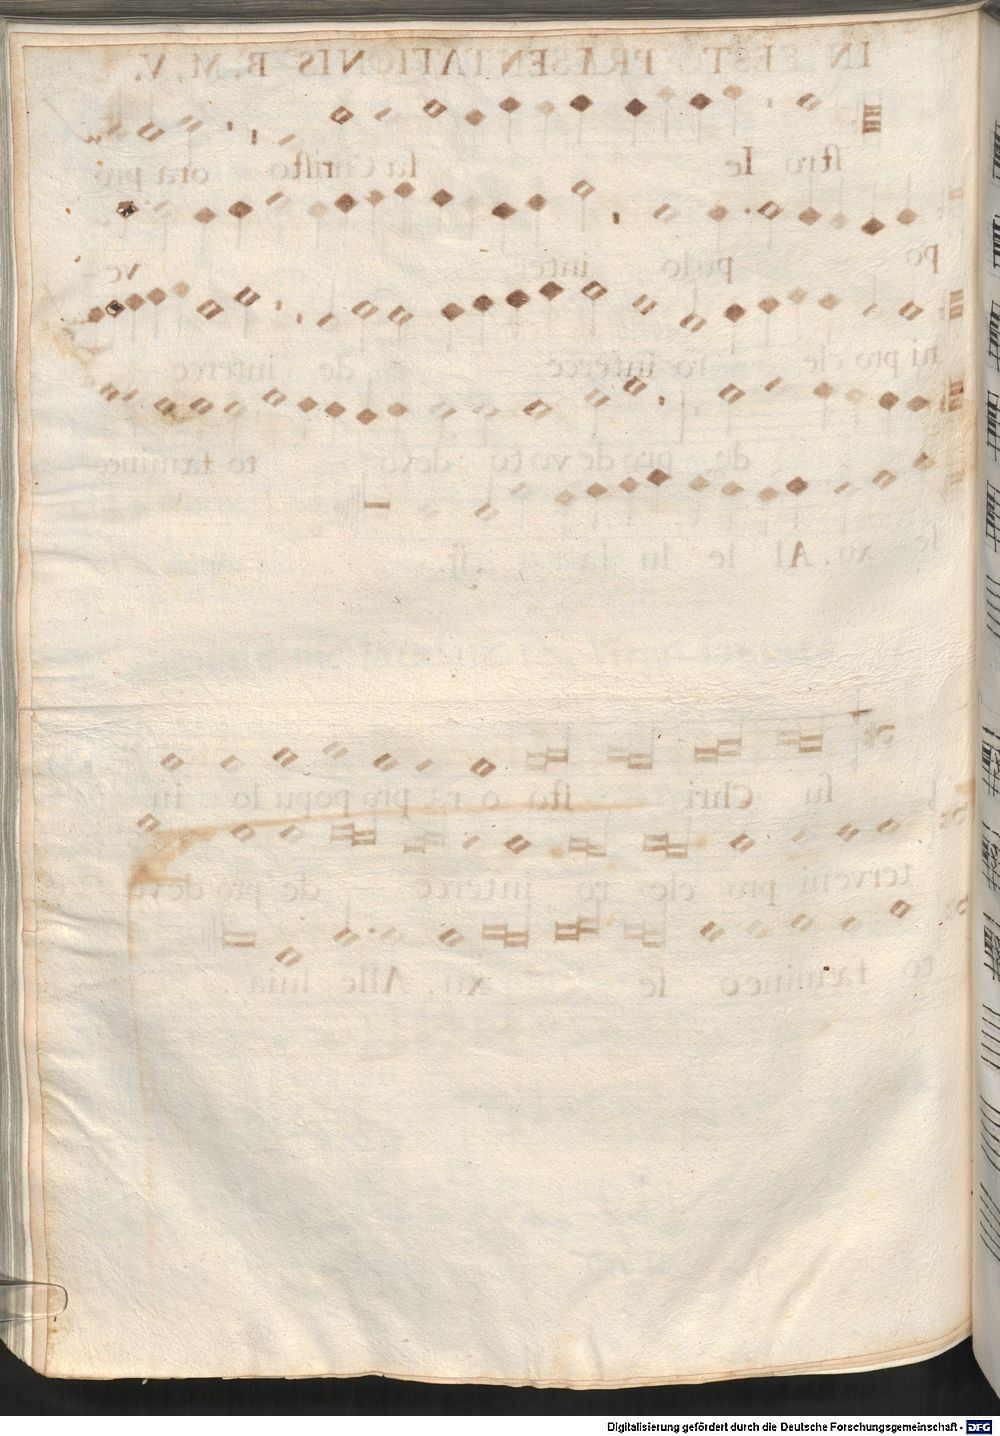 IN FESTO PRÆSENTATIONIS B. M. V.
ſtro Ie ſu Chriſto ora pro
po pulo inter ve-
ni pro cle ro interce de interce
de pro devoto devo to fæmineo
ſe xu. Al le lu
ſu Chri ſto o ra pro popu lo in
terveni pro cle ro interce de pro devo
to fæmineo ſe xu. Alle luia.
Digitalisierung gefördert durch die Deutsche Forschungsgemeinschaft - DFG